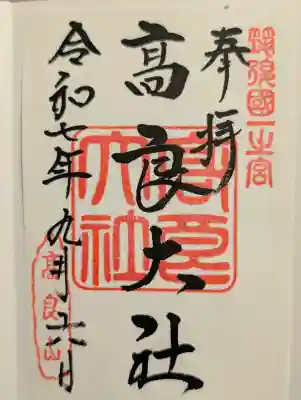 筑後國一之宮
奉拝
高良大社
高良大社
令和七年九月廿六日
高良山